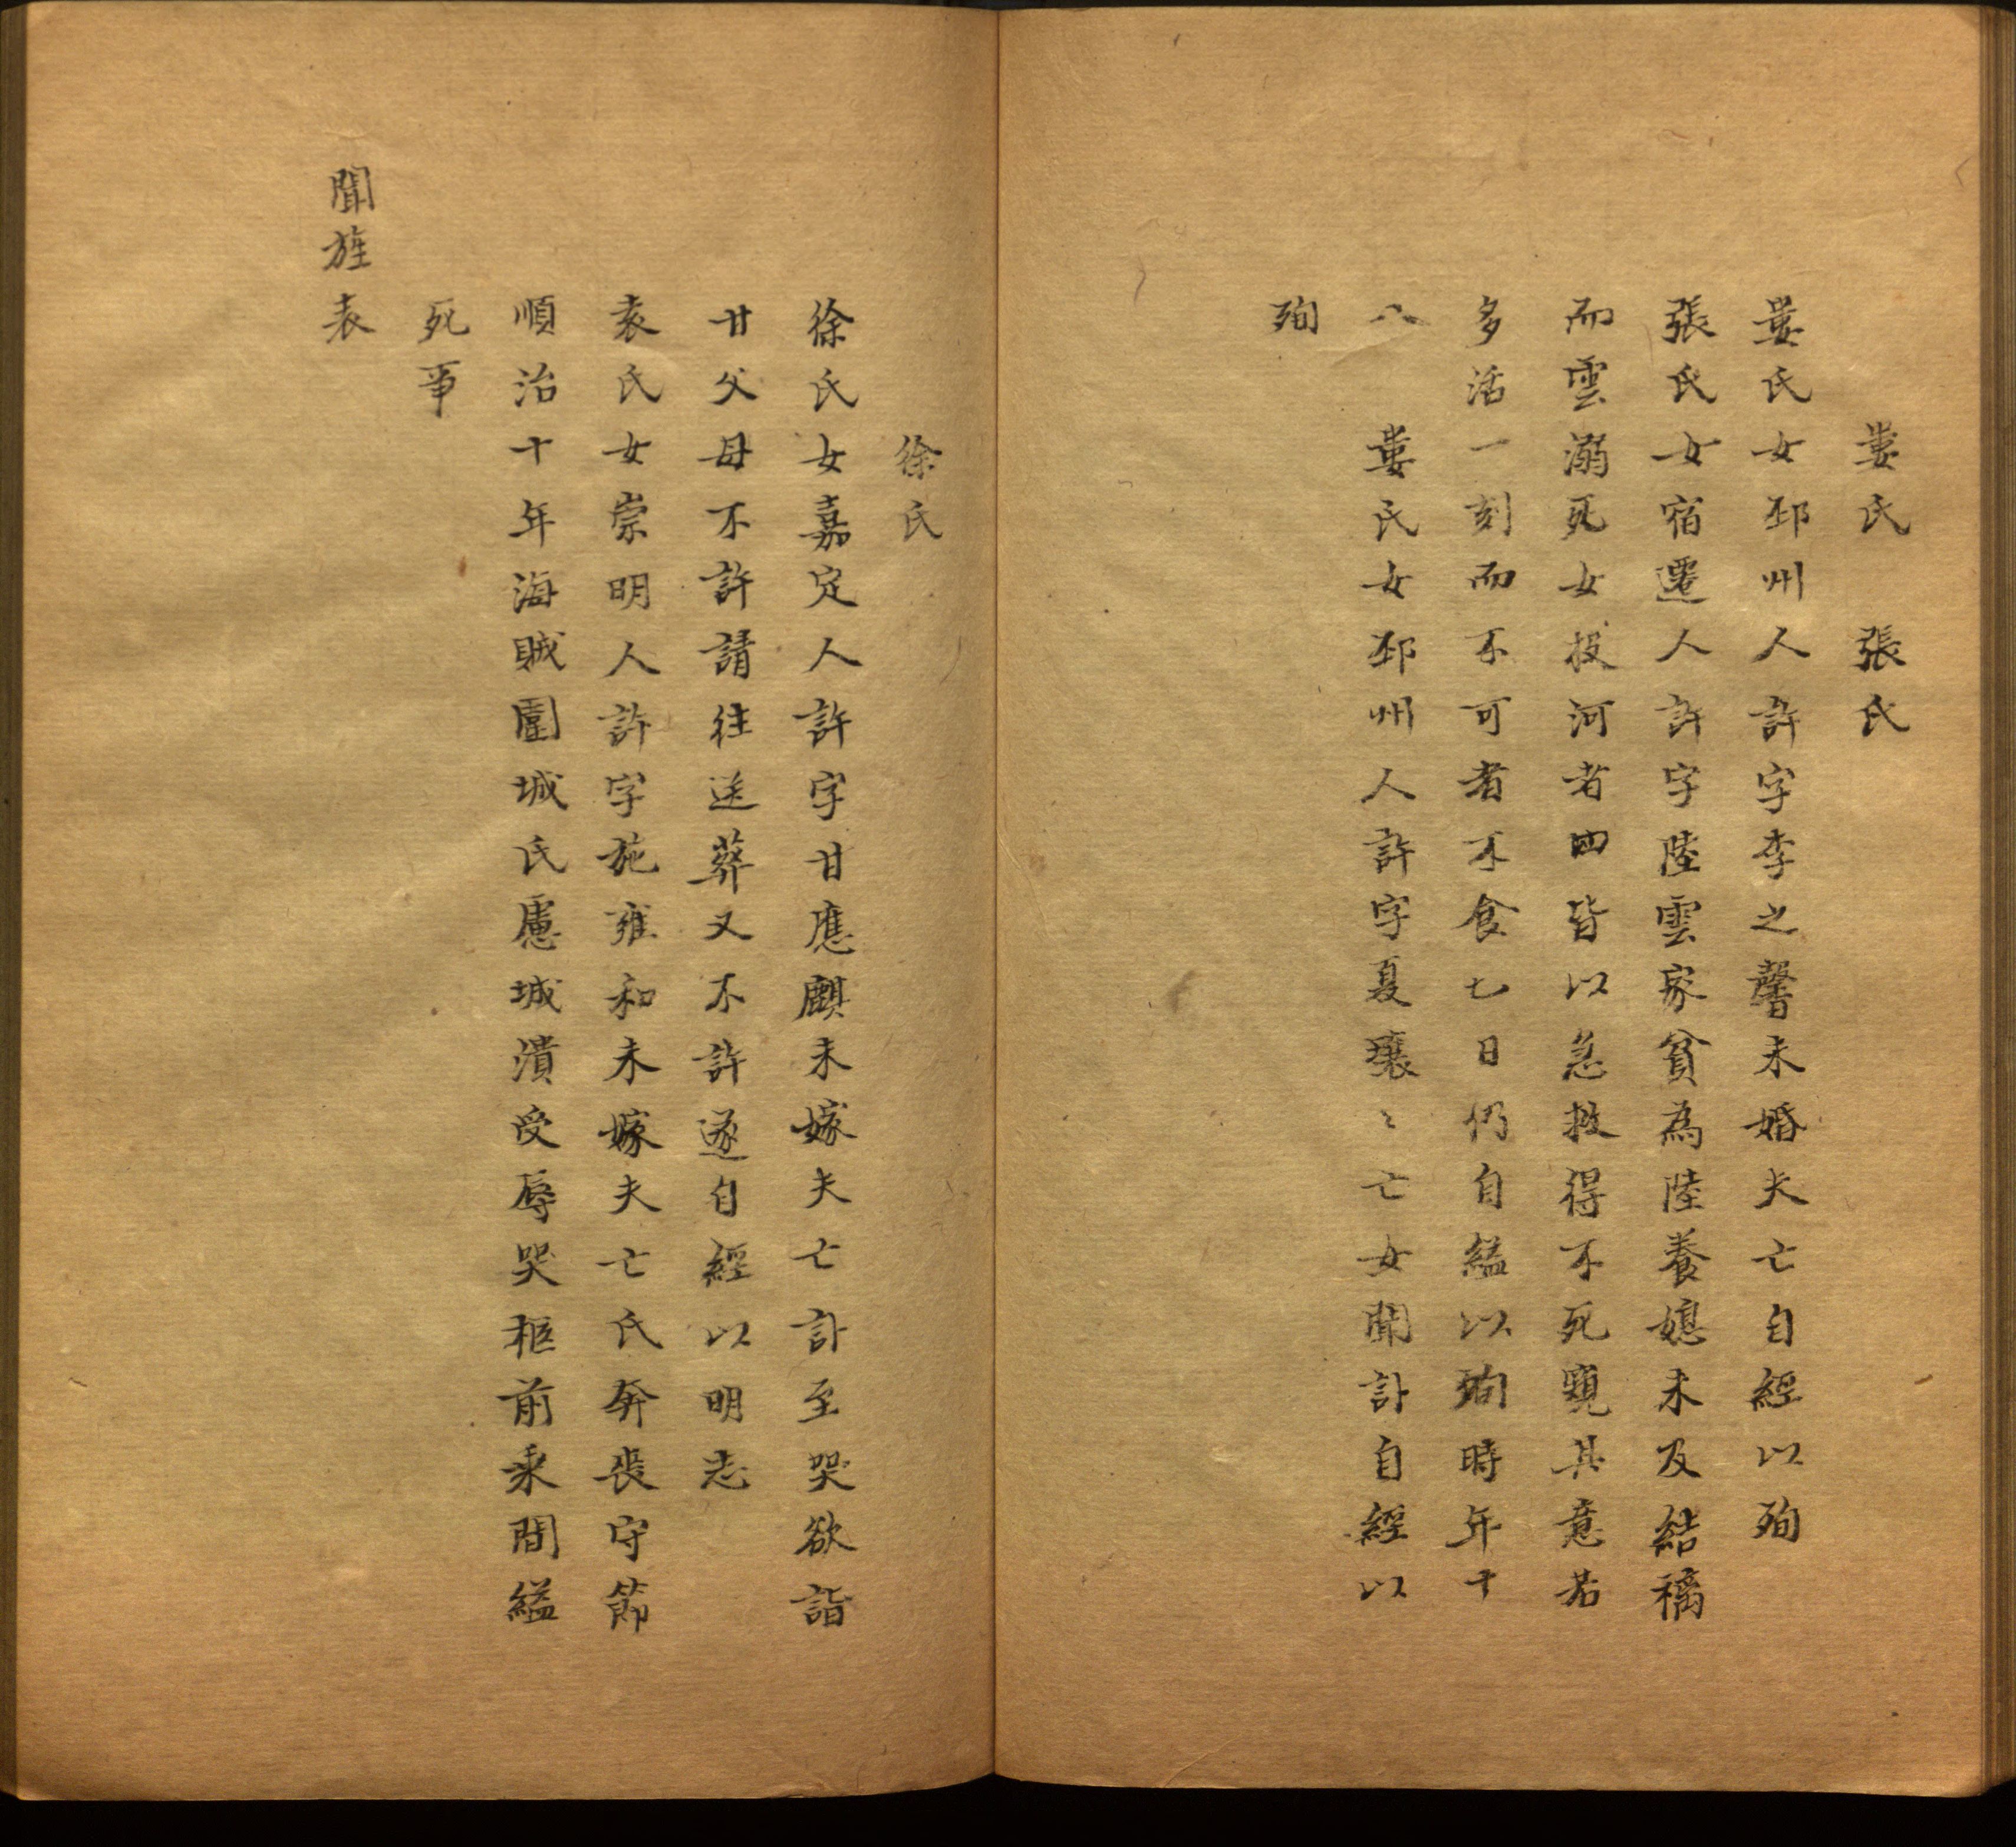 婁氏　張氏
婁氏女邳州人許字李之馨未婚夫亡自經以殉
張氏女宿遷人許字陸雲家貧為陸養媳未及結褵
而雲溺死女投河者四皆以急救得不死窺其意若
多活一刻而不可者不食七日仍自縊以殉時年十
八　婁氏女邳州人許字夏瓖〻亡女聞訃自經以
殉
徐氏
徐氏女嘉定人許字甘應麒未嫁夫亡訃至哭欲詣
甘父母不許請往送葬又不許遂自經以明志
袁氏女崇明人許字施雍和未嫁夫亡氏奔喪守節
順治十年海賊圍城氏慮城潰受辱哭柩前乘間縊
死事
聞旌表